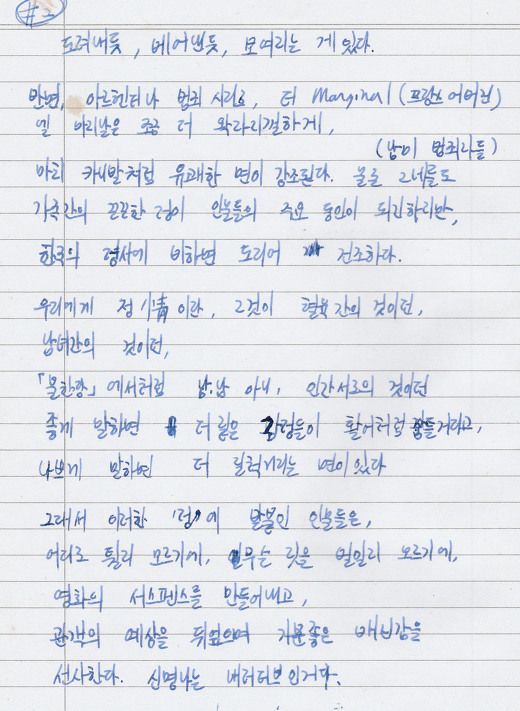 #2
도려내듯, 베어낸듯, 보여리는 게 있다.
반면, 아르헨티나 범죄 시리즈, 더 marginal (프랑스어 버전)
엘 마리날은 조금 더 왁라리껄하게,
(남미 범죄자들)
마치 카니발처럼 유쾌한 면이 강조된다. 물론 그네들도
가족간의 끈끈한 정이 인물들의 주요 동인이 되긴하지만,
한국의 영사에 비하면 도리어 건조하다.
우리에게 정 情 이란, 그것이 혈육간의 것이던,
남녀간의 것이던,
「불한당」에서처럼 남.남 아니, 인간서로의 것이던
좋게 말하면 더 많은 감정들이 활어처럼 꿈틀거리고,
나쁘게 말하면 더 질척거리는 면이 있다
그래서 이러한 '정'에 발붙인 인물들은,
어디로 튈지 모르기에, 무슨 짓을 벌일지 모르기에,
영화의 서스펜스를 만들어내고,
관객의 예상을 뒤엎으며 기분좋은 배신감을
선사한다. 신명나는 내러티브인거다.